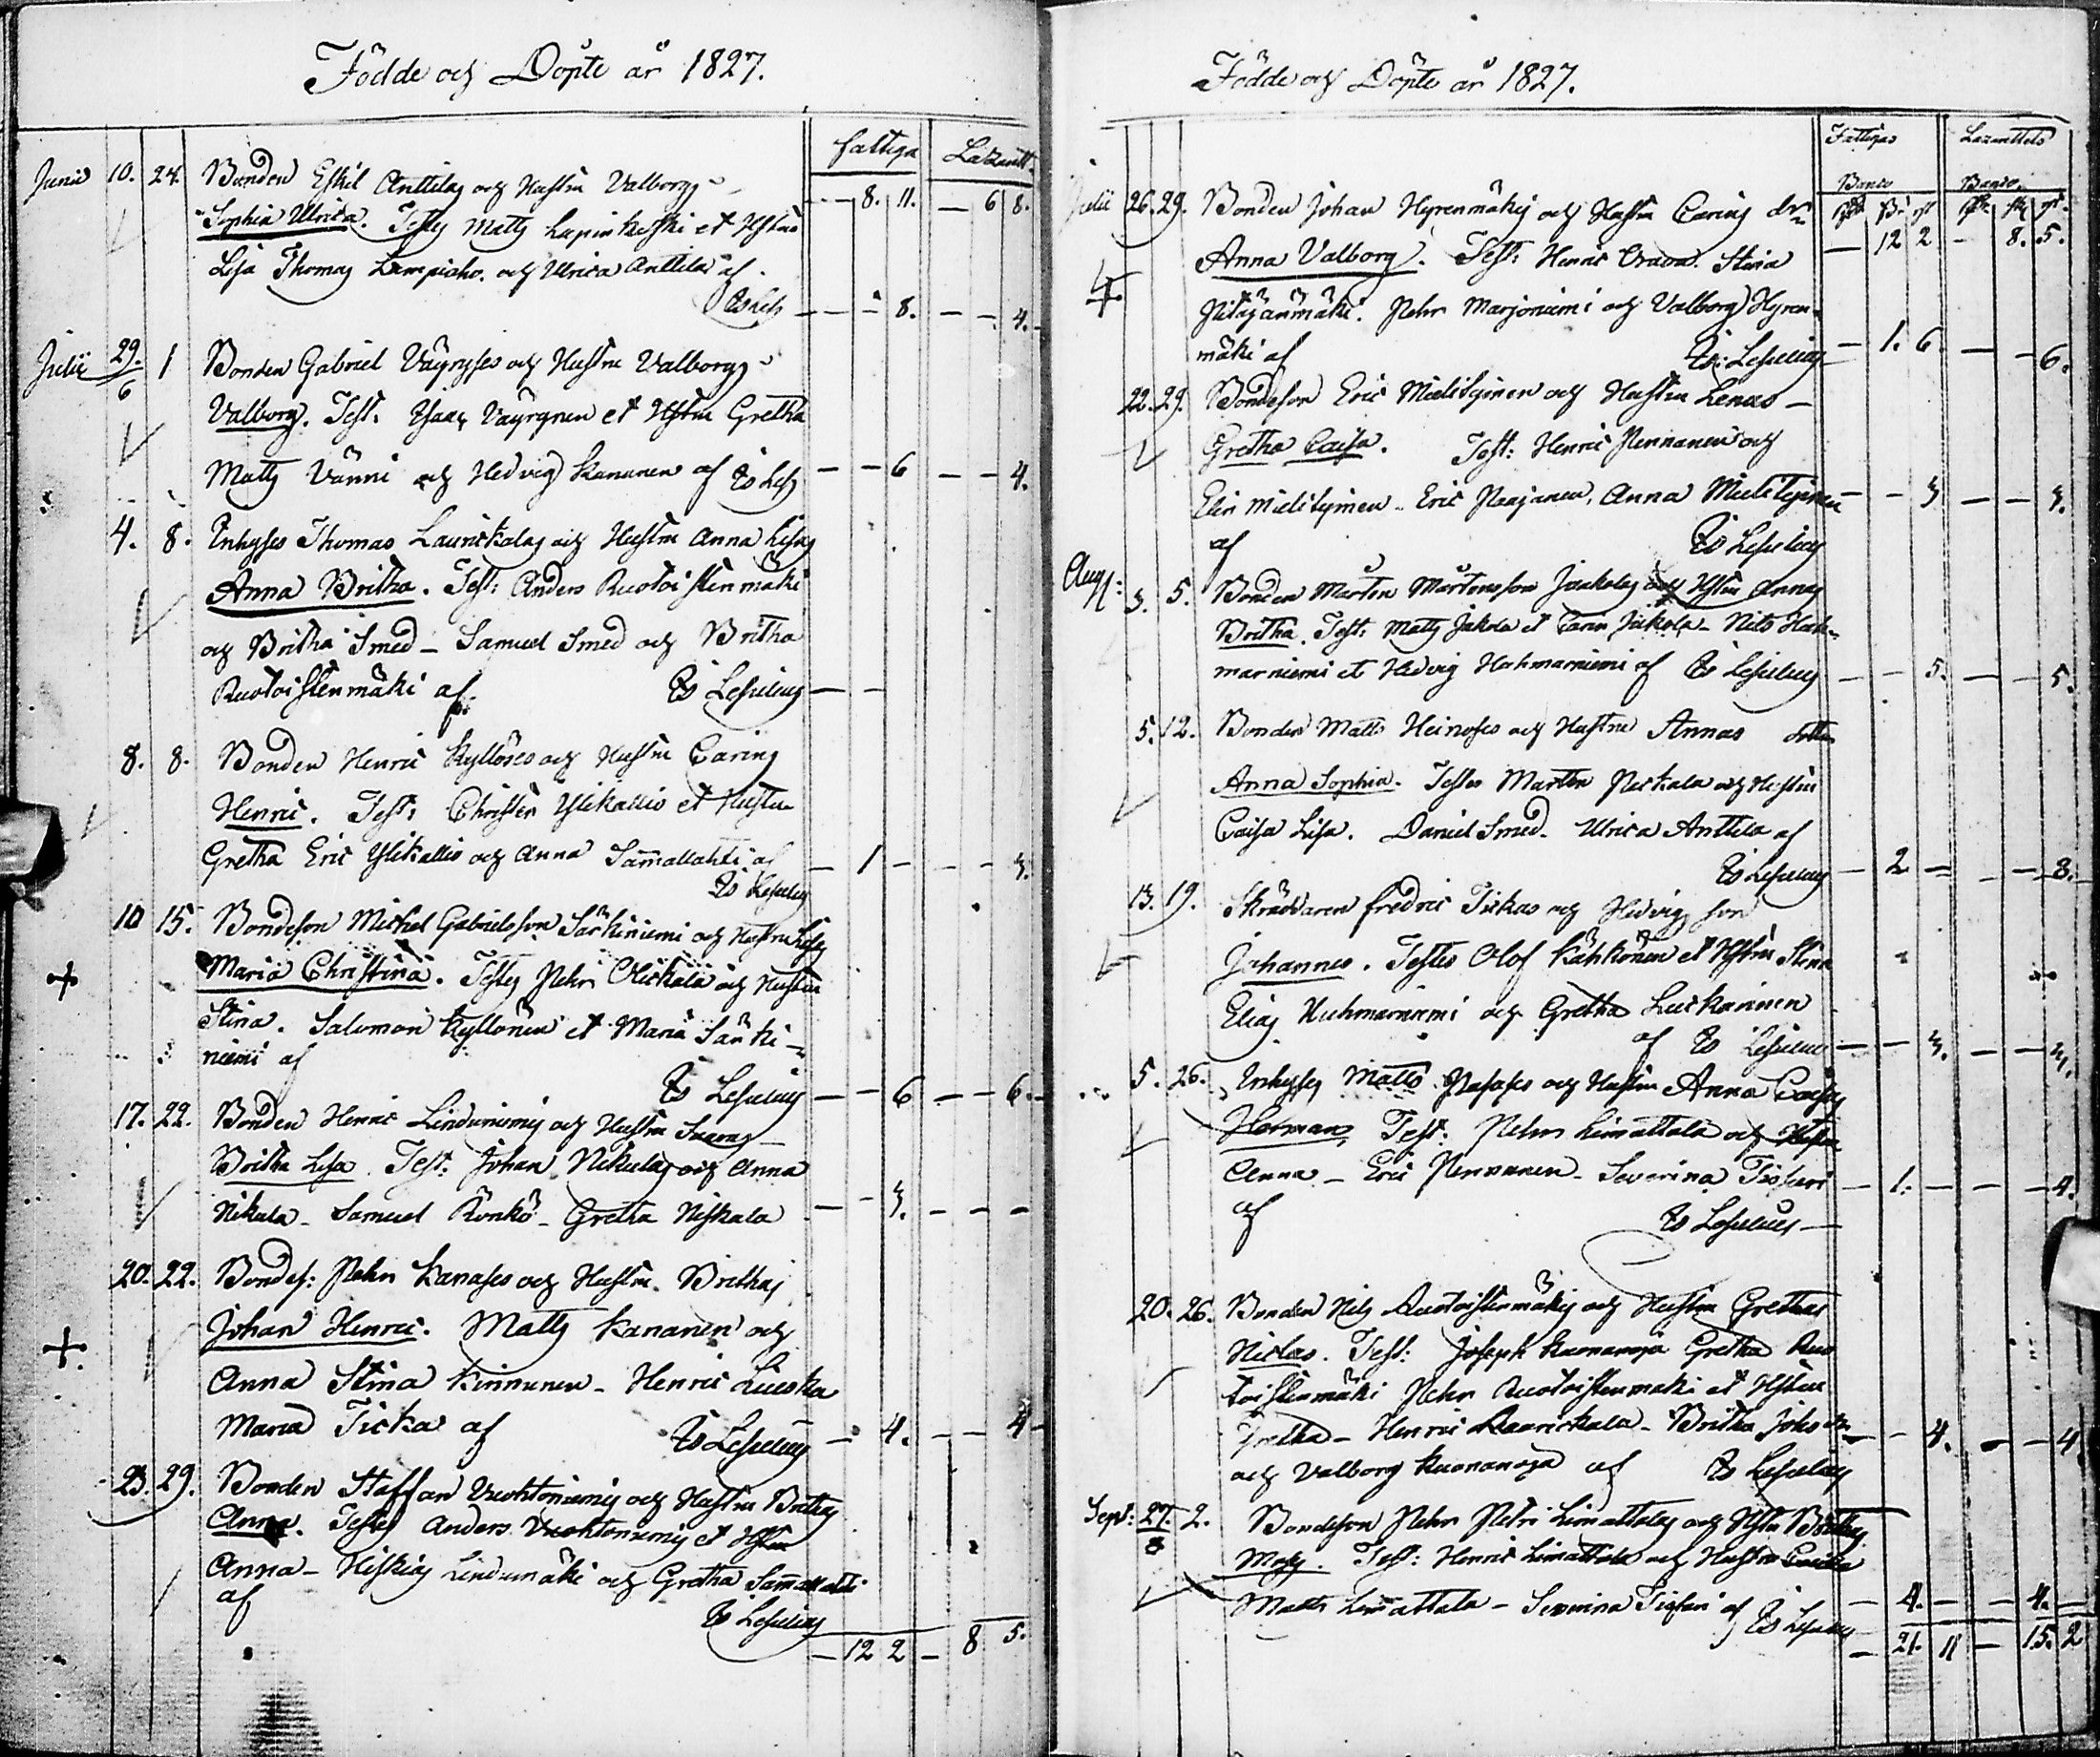 Födde och Döpte år 1827.
fattiga Lazarett.
Junii 10. 24. Bonden Eskil Anttilas och Hustru Valborgs
— 8. 11. — 6 8.
Sophia Ulrica. Testes Matts Lapinkoski et Hstru
Lisa Thomas Lampiaho och Ulrica Anttila af
— — 8. — — 4.
Julii 29./6 1 Bonden Gabriel Väyryses och Hustru Valborgs
Valborg. Test: Isaac Väyrynen et Hstru Gretha
Matts Vänni och Hedvig Kananen af — — 6 — — 4.
4. 8. Inhyses Thomas Laurikalas och Hustru Anna Lisas
Anna Britha. Test: Anders Ruotoistenmäki
och Britha Smed — Samuel Smed och Britha
Ruotoistenmäki af Es Leselius — —
8. 8. Bonden Henric Kyllöses och Hustru Carins
Henric. Test: Christer Ylikallio et Hustru
Gretha Eric Ylikallio och Anna Sammallahti af — 1 — — — 3.
Es Leselius
10 15. Bondeson Michel Gabrielsson Särkiniemi och Hustru Lisas
Maria Christina. Testes Pehr Olickala och Hustru
Stina. Salomon Kyllönen et Maria Särki-
niemi af
Es Leselius — — 6 — — 6.
17. 22. Bonden Henric Linduniemis och Hustru
Britha Lisa. Test: Johan Nikulas och Anna
Nikula — Samuel Rönkö — Gretha Niskala — — 3. — — —
20. 22. Bondes: Pehr Kanases och Hustru Brithas
Johan Henric. Matts Kananen och
Anna Stina Kinnunen — Henric
Maria Ticka af Es Leselius — 4. — — 4
23. 29. Bonden Staffan Vuohtoniemis och Hustru Brithas
Anna. Testes Anders Vuohtoniemis et Hstru
Anna — Hiskias Lindumäki och Gretha Sammallahti
af
Es Leselius
— 12 2 — 8 5.
Födde och Döpte år 1827.
Fattigas Lazarettets
Banco Banco.
Julii 26. 29. Bonden Johan Hyrenmäkis och Hustru Carins dr
— 12 2 — 8. 5.
Anna Valborg. Test: Henric Stina
Pitäjänmäki. Pehr Marjoniemi och Valborg Hyren-
mäki af Es: Leselius — 1. 6 — — 6.
22. 29. Bondeson Eric Mielityinen och Hustru Lenas —
Gretha Caisa. Test: Henric Pennanen och
Elin Mielityinen — Eric Paajanen, Anna Mielityinen — — 3 — — 3.
af Es Leselius
Aug: 3. 5. Bonden Mårten Mårtensson Jaakolas och Hstru Annas
Britha. Test: Matts Jakola et Carin Jakola — Nils Huh-
marniemi et Hedvig Huhmarniemi af Es Leselius — — 5. — — 5.
5. 12. Bonden Matts Heinoses och Hustru Annas dotter
Anna Sophia. Testes Mårten Peckala och Hustru
Caisa Lisa. Daniel Smed. Ulrica Anttila af
Es Leselius — 2 — — — 8.
13. 19. Skräddaren Fredric Tickas och Hedvigs son
Johannes. Testes Olof Kähkönen et Hstru Stina
Elias Huhmarniemi och Gretha Leskainnen
af Es Leselius — — 3. — — 3.
5. 26. Inhyses Matts Pasases och Hustru Anna Caisas
Herman. Test: Pehr Limattala och Hustru
Anna — Eric Pennanen — Severina — 1. — — — 4.
af
Es Leselius —
20. 26. Bonden Nils Ruotoistenmäkis och Hustru Grethas
Niclas. Test: Joseph Kuonanoja Gretha Ruo
toistenmäki Pehr Ruotoistenmäki et Hstru
Gretha — Henric Laurickala — Britha — — 4. — — 4
och Valborg Kuonanoja af Es Leselius
Sept: 27./8 2. Bondeson Pehr Petri Limattalas och Hstru Brithas
Moses. Test: Henric Limattala och Hustru
Matts Limattala — Severina af Es Leselius — 4. — — 4. —
— 21. 11 — 15. 2